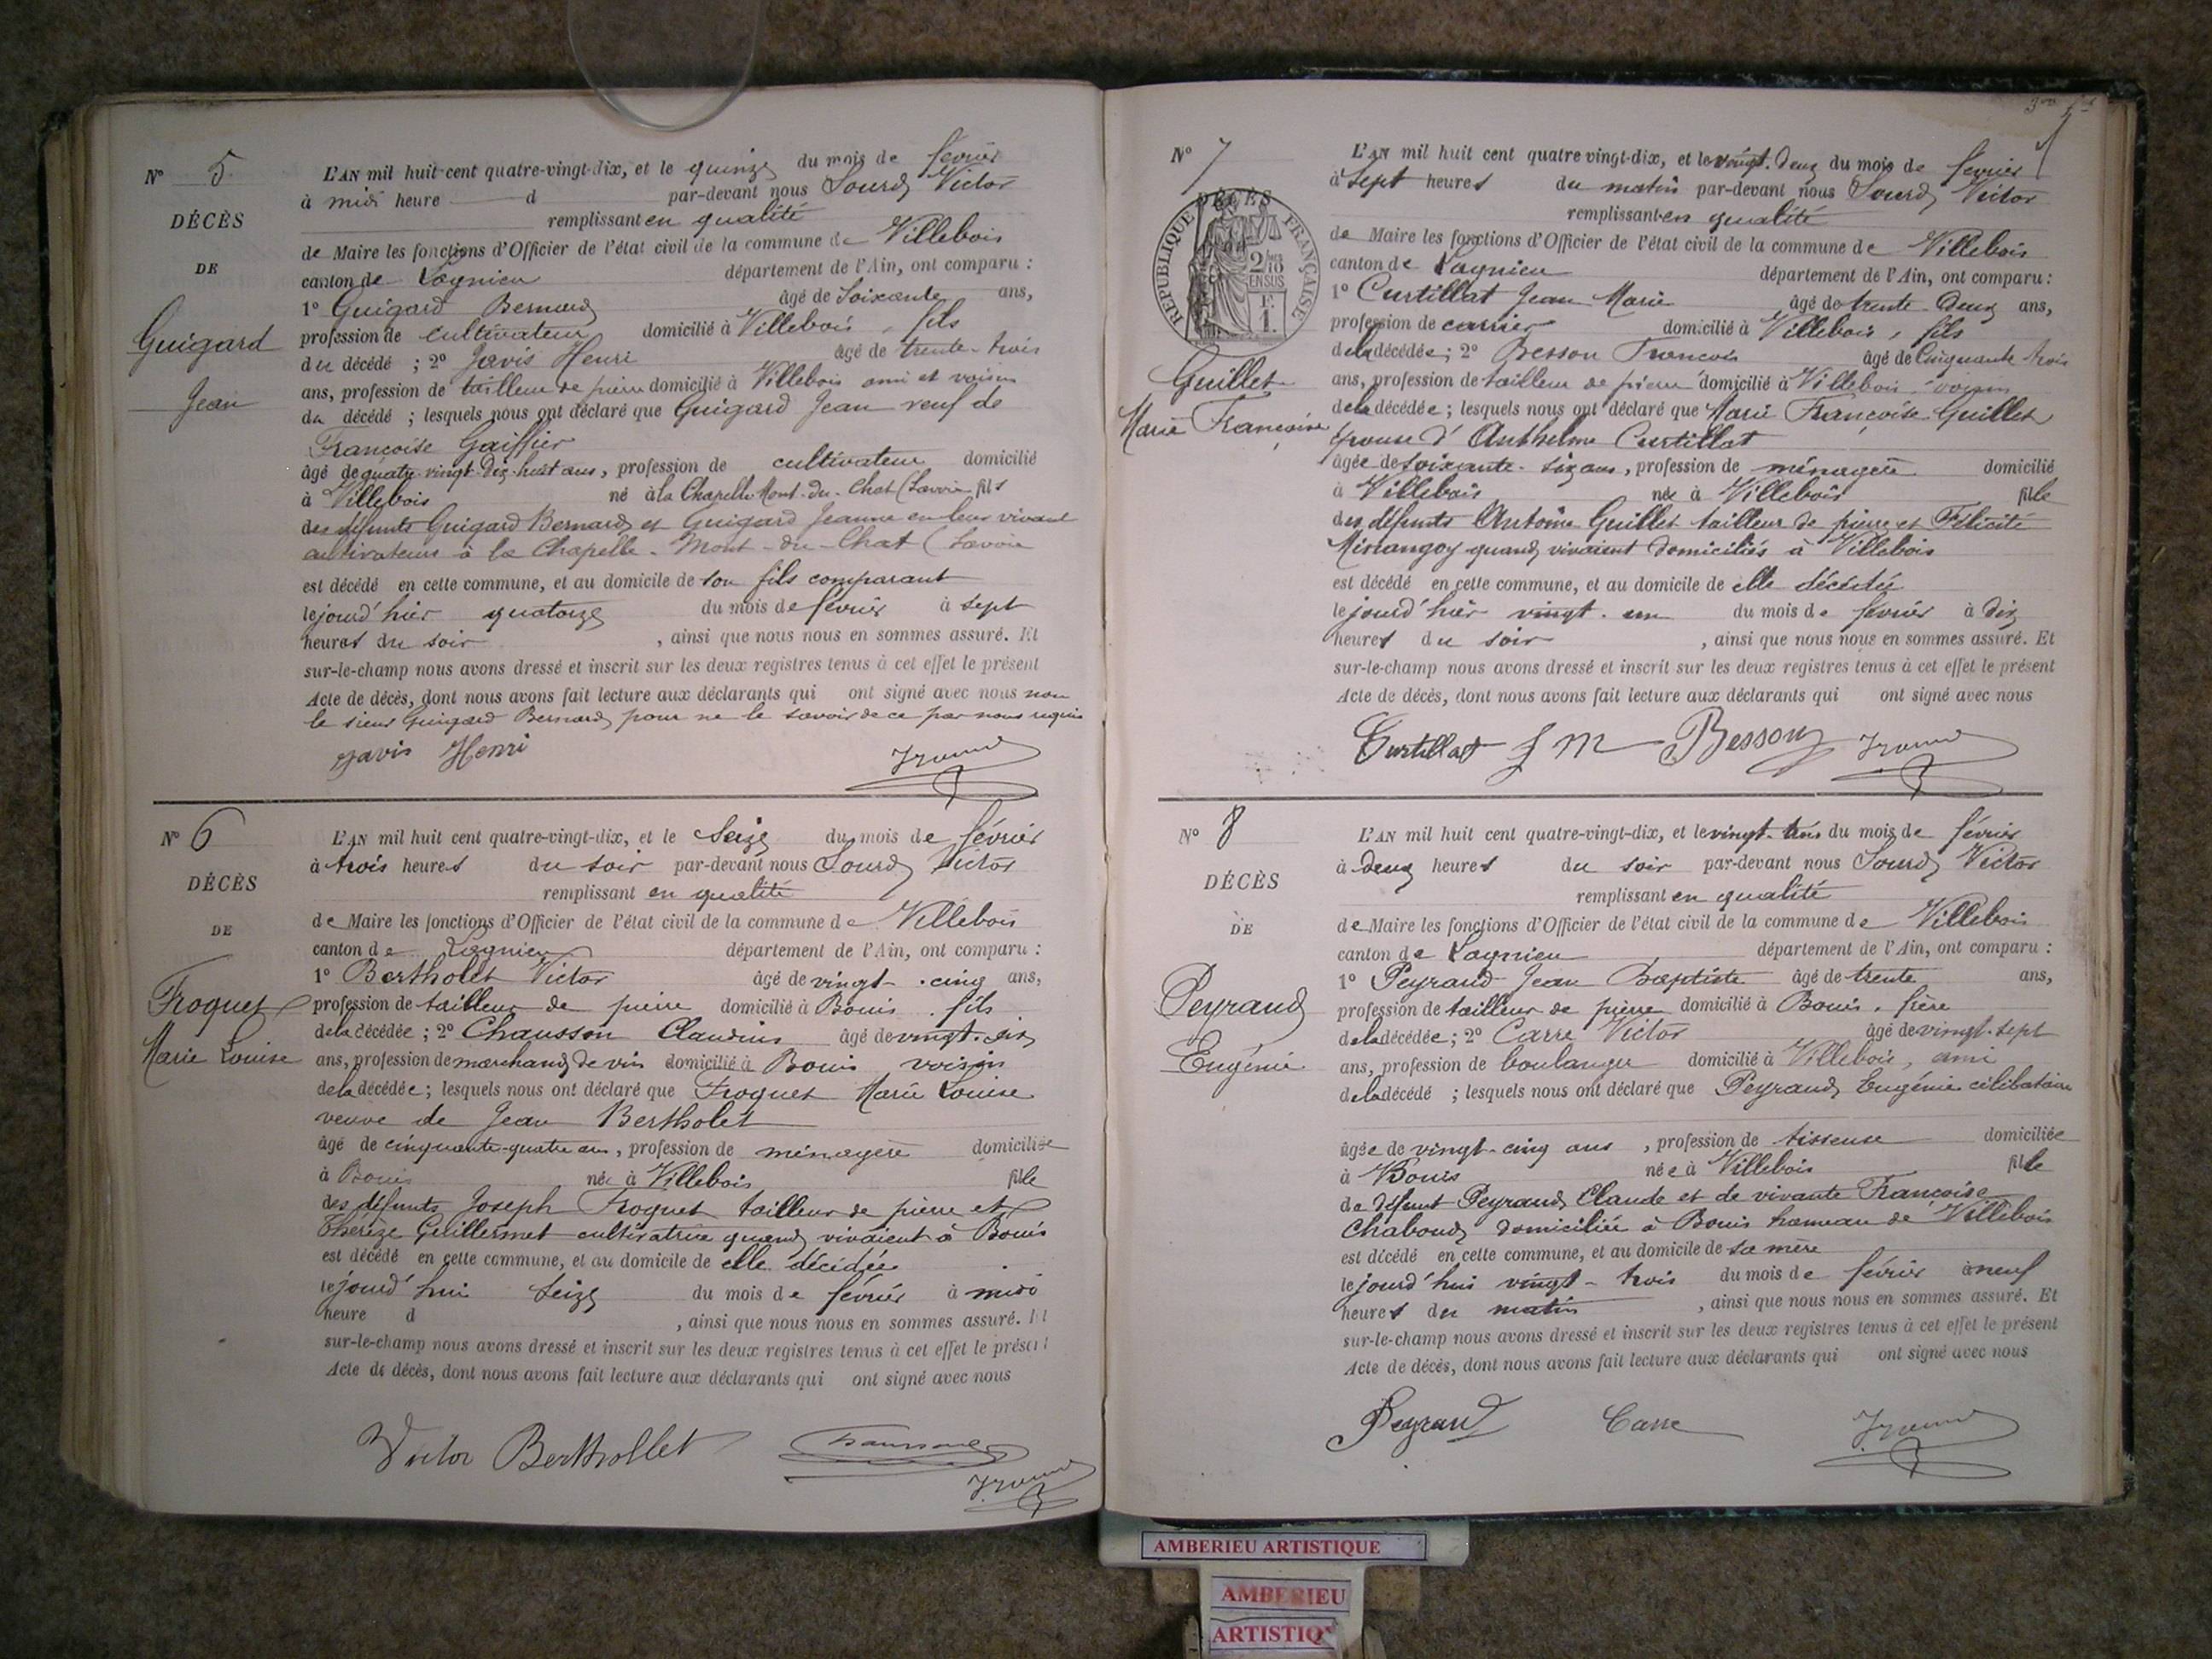 N° 5
DÉCÈS
DE
Guigard
Jean
L'AN mil huit cent quatre-vingt-dix, et le quinze du mois de février
à midi heure d par-devant nous Sourd Victor
remplissant en qualité
de Maire les fonctions d'Officier de l'état civil de la commune de Villebois
canton de Lagnieu département de l'Ain, ont comparu :
1° Guigard Bernard âgé de Soixante ans,
profession de cultivateur domicilié à Villebois, fils
du décédé ; 2° Javis Henri âgé de trente-trois
ans, profession de tailleur de pierre domicilié à Villebois ami et voisin
du décédé ; lesquels nous ont déclaré que Guigard Jean veuf de
Françoise Gaiffier
âgé de quatre-vingt-dix-huit ans, profession de cultivateur domicilié
à Villebois né à la Chapelle Mont-du-Chat (Savoie fils
des défunts Guigard Bernard et Guigard Jeanne en leur vivant
cultivateurs à la Chapelle-Mont-du-Chat (Savoie
est décédé en cette commune, et au domicile de son fils comparant
le jourd'hier quatorze du mois de février à sept
heures du soir, ainsi que nous nous en sommes assuré. Et
sur-le-champ nous avons dressé et inscrit sur les deux registres tenus à cet effet le présent
Acte de décès, dont nous avons fait lecture aux déclarants qui ont signé avec nous non
le sieur Guigard Bernard pour ne le savoir de ce par nous requis
Javis Henri
N° 6
DÉCÈS
DE
Froquet
Marie Louise
L'AN mil huit cent quatre-vingt-dix, et le Seize du mois de février
à trois heures du soir par-devant nous Sourd Victor
remplissant en qualité
de Maire les fonctions d'Officier de l'état civil de la commune de Villebois
canton de Lagnieu département de l'Ain, ont comparu :
1° Bertholet Victor âgé de vingt-cinq ans,
profession de tailleur de pierre domicilié à Bouis, fils
de la décédée ; 2° Chausson Claudius âgé de vingt-six
ans, profession de marchand de vin domicilié à Bouis voisin
de la décédée ; lesquels nous ont déclaré que Froquet Marie Louise
veuve de Jean Bertholet
âgé de cinquante-quatre ans, profession de ménagère domiciliée
à Bouis née à Villebois fille
des défunts Joseph Froquet tailleur de pierre et
Thérèze Guillermet cultivatrice quand vivaient à Bouis
est décédé en cette commune, et au domicile de elle décédée
le jourd'hui Seize du mois de février à midi
heure d, ainsi que nous nous en sommes assuré. Et
sur-le-champ nous avons dressé et inscrit sur les deux registres tenus à cet effet le présent
Acte de décès, dont nous avons fait lecture aux déclarants qui ont signé avec nous
Victor Berthollet
N° 7
DÉCÈS
RÉPUBLIQUE FRANÇAISE
2/10
EN SUS
F.
1.
Guillet
Marie Françoise
L'AN mil huit cent quatre vingt-dix, et le vingt-deux du mois de février
à Sept heures du matin par-devant nous Sourd Victor
remplissant en qualité
de Maire les fonctions d'Officier de l'état civil de la commune de Villebois
canton de Lagnieu département de l'Ain, ont comparu :
1° Curtillat Jean Marie âgé de trente-deux ans,
profession de carrier domicilié à Villebois, fils
de la décédée ; 2° Besson François âgé de Cinquante trois
ans, profession de tailleur de pierre domicilié à Villebois, voisin
de la décédée ; lesquels nous ont déclaré que Marie Françoise Guillet
épouse d'Anthelme Curtillat
âgée de soixante-six ans, profession de ménagère domicilié
à Villebois née à Villebois fille
des défunts Antoine Guillet tailleur de pierre et Félicité
Minangoy quand vivaient domiciliés à Villebois
est décédé en cette commune, et au domicile de elle décédée
le jourd'hier vingt-un du mois de février à dix
heures du soir, ainsi que nous nous en sommes assuré. Et
sur-le-champ nous avons dressé et inscrit sur les deux registres tenus à cet effet le présent
Acte de décès, dont nous avons fait lecture aux déclarants qui ont signé avec nous
Curtillat J M Besson
N° 8
DÉCÈS
DE
Peyraud
Eugénie
L'AN mil huit cent quatre-vingt-dix, et le vingt-trois du mois de février
à deux heures du soir par-devant nous Sourd Victor
remplissant en qualité
de Maire les fonctions d'Officier de l'état civil de la commune de Villebois
canton de Lagnieu département de l'Ain, ont comparu :
1° Peyraud Jean Baptiste âgé de trente ans,
profession de tailleur de pierre domicilié à Bouis, frère
de la décédée ; 2° Carre Victor âgé de vingt-sept
ans, profession de boulanger domicilié à Villebois, ami
de la décédé ; lesquels nous ont déclaré que Peyraud Eugénie célibataire
âgée de vingt-cinq ans, profession de tisseuse domiciliée
à Bouis née à Villebois fille
de défunt Peyraud Claude et de vivante Françoise
Chaboud domiciliée à Bouis hameau de Villebois
est décédé en cette commune, et au domicile de sa mère
le jourd'hui vingt-trois du mois de février à neuf
heures du matin, ainsi que nous nous en sommes assuré. Et
sur-le-champ nous avons dressé et inscrit sur les deux registres tenus à cet effet le présent
Acte de décès, dont nous avons fait lecture aux déclarants qui ont signé avec nous
Peyraud Carre
AMBERIEU ARTISTIQUE
AMBERIEU
ARTISTIQ